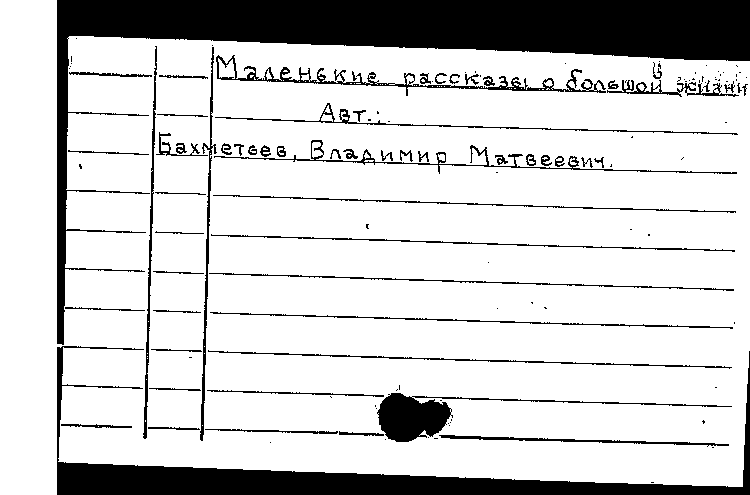 Маленькие рассказы о большой жизни
Авт.:
Бахметьев, Владимир Матвеевич.